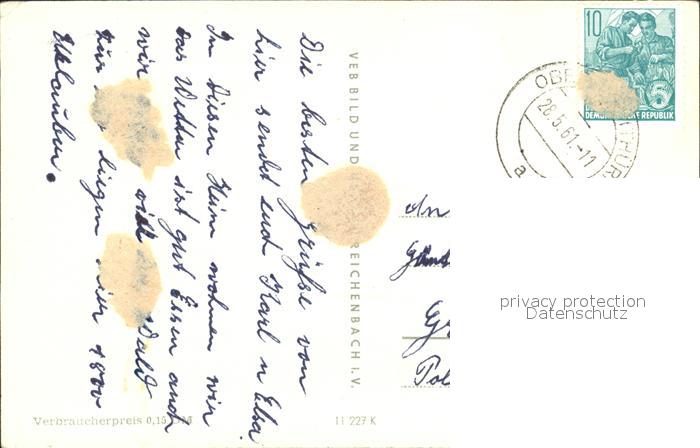 Die besten Grüße von
hier sendet euch Karl u Elsa.
In diesem Heim wohnen wir
das Wetter ist gut Essen auch
wir viel Wald
liegen hier 1800
Urlauber.
VEB BILD UND REICHENBACH I. V.
Verbraucherpreis 0,15 DM
11 227 K
10
DEMOKRATISCHE REPUBLIK
5
OBE
THÜR
28.5.61.-11
a
An
privacy protection
Datenschutz